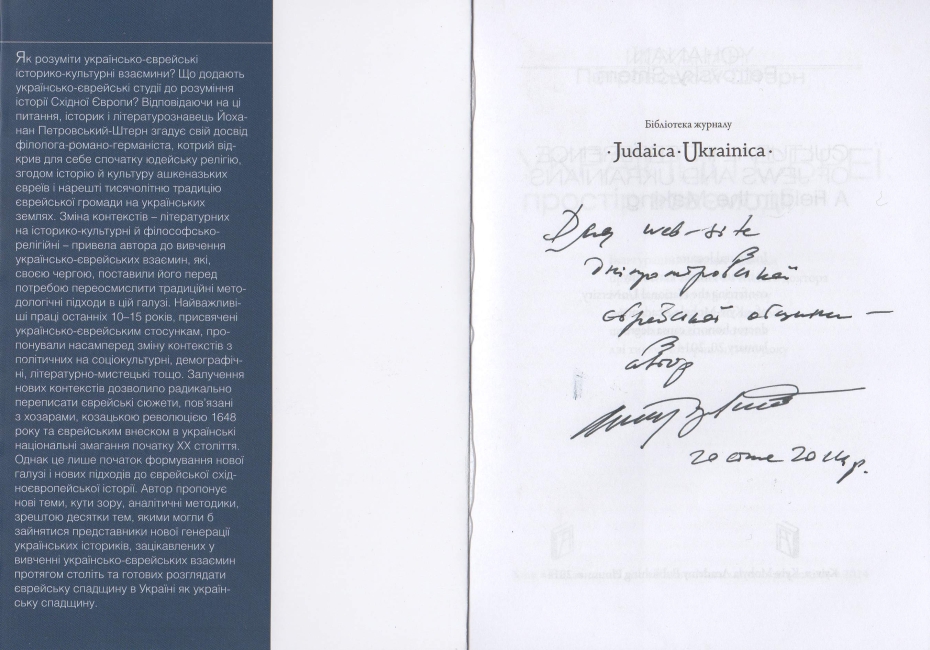 Як розуміти українсько-єврейські
історико-культурні взаємини? Що додають
українсько-єврейські студії до розуміння
історії Східної Європи? Відповідаючи на ці
питання, історик і літературознавець Йоха-
нан Петровський-Штерн згадує свій досвід
філолога-романо-германіста, котрий від-
крив для себе спочатку юдейську релігію,
згодом історію й культуру ашкеназьких
євреїв і нарешті тисячолітню традицію
єврейської громади на українських
землях. Зміна контекстів – літературних
на історико-культурні й філософсько-
релігійні – привела автора до вивчення
українсько-єврейських взаємин, які,
своєю чергою, поставили його перед
потребою переосмислити традиційні мето-
дологічні підходи в цій галузі. Найважливі-
ші праці останніх 10–15 років, присвячені
українсько-єврейським стосункам, про-
понували насамперед зміну контекстів з
політичних на соціокультурні, демографіч-
ні, літературно-мистецькі тощо. Залучення
нових контекстів дозволило радикально
переписати єврейські сюжети, пов'язані
з хозарами, козацькою революцією 1648
року та єврейським внеском в українські
національні змагання початку ХХ століття.
Однак це лише початок формування нової
галузі і нових підходів до єврейської схід-
ноєвропейської історії. Автор пропонує
нові теми, кути зору, аналітичні методики,
зрештою десятки тем, якими могли б
зайнятися представники нової генерації
українських істориків, зацікавлених у
вивченні українсько-єврейських взаємин
протягом століть та готових розглядати
єврейську спадщину в Україні як україн-
ську спадщину.
Бібліотека журналу
·Judaica·Ukrainica·
Для web-site
Дніпропетровської
єврейської общини –
автор
20 січня 2014 р.